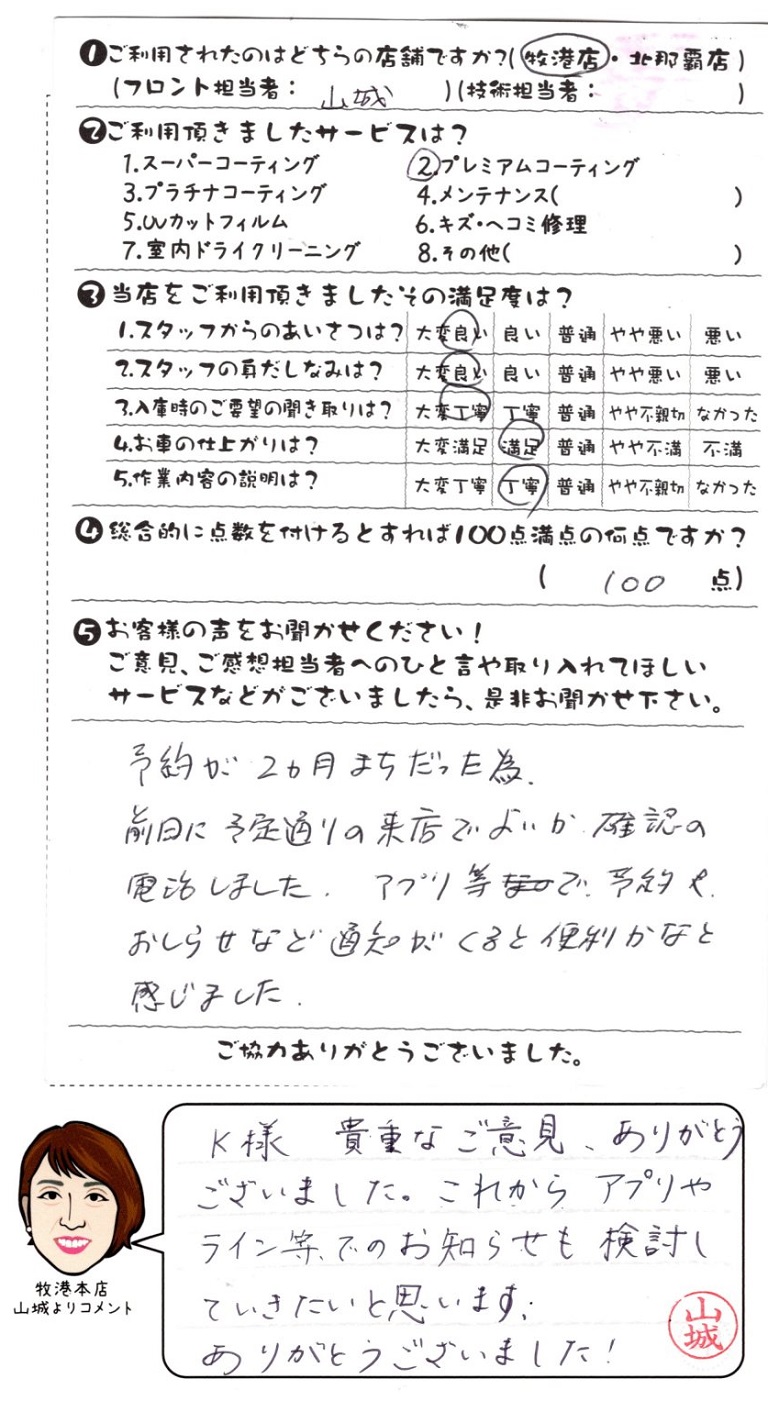 ❶ご利用されたのはどちらの店舗ですか?(牧港店・北那覇店)
(フロント担当者： 山城 )(技術担当者： )
❷ご利用頂きましたサービスは？
1.スーパーコーティング 2.プレミアムコーティング
3.プラチナコーティング 4.メンテナンス( )
5.UVカットフィルム 6.キズ・ヘコミ修理
7.室内ドライクリーニング 8.その他( )
❸当店をご利用頂きましたその満足度は？
1.スタッフからのあいさつは? 大変良い 良い 普通 やや悪い 悪い
2.スタッフの身だしなみは？ 大変良い 良い 普通 やや悪い 悪い
3.入庫時のご要望の聞き取りは? 大変丁寧 丁寧 普通 やや不親切 なかった
4.お車の仕上がりは？ 大変満足 満足 普通 やや不満 不満
5.作業内容の説明は？ 大変丁寧 丁寧 普通 やや不親切 なかった
❹総合的に点数を付けるとすれば100点満点の何点ですか？
( 100 点)
❺お客様の声をお聞かせください！
ご意見、ご感想担当者へのひと言や取り入れてほしい
サービスなどがございましたら、是非お聞かせ下さい。
予約が 2ヵ月まちだった為、
前日に予定通りの来店でよいか 確認の
電話しました. アプリ等で、予約や、
おしらせなど通知がくると便利かなと
感じました.
ご協力ありがとうございました。
K様 貴重なご意見、ありがとう
ございました。これから アプリや
ライン等でのお知らせも 検討し
ていきたいと思います。
ありがとうございました！
山城
牧港本店
山城よりコメント